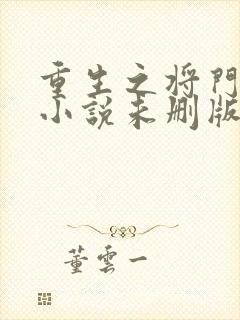 重生之将門
小説未删版
董雲一